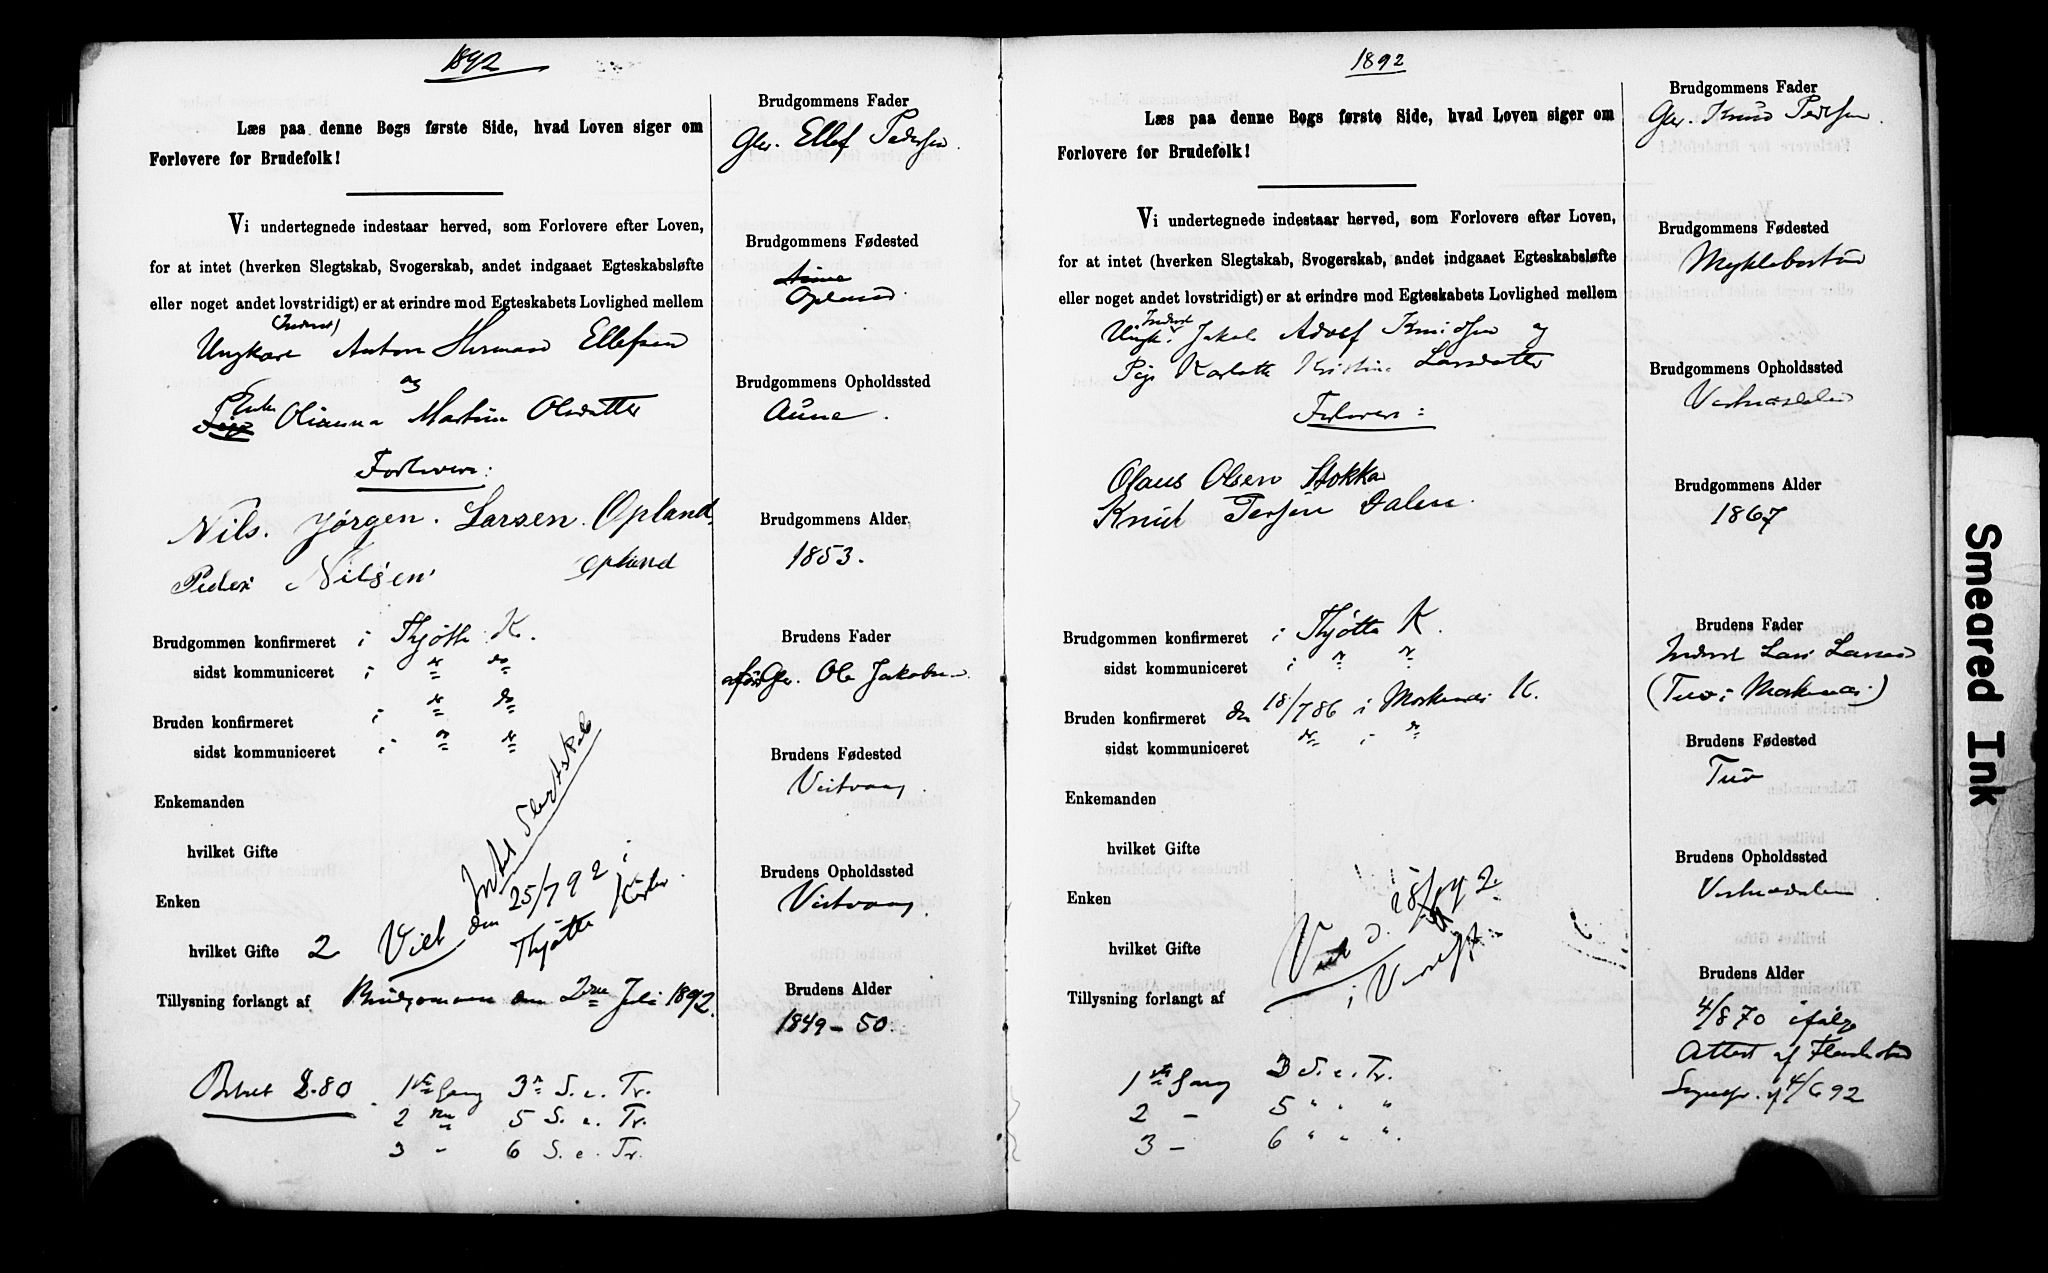 1892
Læs paa denne Bogs første Side, hvad Loven siger om
Forlovere for Brudefolk!
Vi undertegnede indestaar herved, som Forlovere efter Loven,
for at intet (hverken Slegtskab, Svogerskab, andet indgaaet Egteskabsløfte
eller noget andet lovstridigt) er at erindre mod Egteskabets Lovlighed mellem
(Inderst)
Ungkarl Anton Herman Ellefsen
og
Enke
Pige Olianna Martine Olsdatter
Forlovere:
Nils. Jørgen. Larsen. Opland.
Peder Nilsen Opland
Brudgommen konfirmeret i Thjøtta K.
sidst kommuniceret i " "
Bruden konfirmeret i " "
sidst kommuniceret i " "
Enkemanden
hvilket Gifte
Enken
hvilket Gifte 2
Intet Slegtskab
Viet den 25/7 92 i
Thjøtta Kirke.
Tillysning forlangt af Brudgommen den 2den Juli 1892.
Betalt 2.80
1ste Gang 3 S. e. Tr.
2den 5 S. e. Tr.
3 - 6 S. e. Tr.
Brudgommens Fader
Gbr. Ellef Pedersen.
Brudgommens Fødested
Aune
Opland
Brudgommens Opholdssted
Aune.
Brudgommens Alder
1853.
Brudens Fader
Gbr. Ole Jakobsen.
Brudens Fødested
Vistvaag.
Brudens Opholdssted
Vistvaag.
Brudens Alder
1849-50.
1892
Læs paa denne Bogs første Side, hvad Loven siger om
Forlovere for Brudefolk!
Vi undertegnede indestaar herved, som Forlovere efter Loven,
for at intet (hverken Slegtskab, Svogerskab, andet indgaaet Egteskabsløfte
eller noget andet lovstridigt) er at erindre mod Egteskabets Lovlighed mellem
Inderst
Ungk. Jakob Adolf Knudsen og
Pige Karlotte Kristine Larsdatter
Forlovere:
Olaus Olsen Stokka
Knut Persen Dalen.
Brudgommen konfirmeret i Thjøtta K.
sidst kommuniceret i " "
Bruden konfirmeret den 18/7 86 i Moskenes K.
sidst kommuniceret " i "
Enkemanden
hvilket Gifte
Enken
hvilket Gifte
Viet d. 92.
i
Tillysning forlangt af
1ste Gang 3 S. e. Tr.
2 - 5 " " "
3 - 6 " " ".
Brudgommens Fader
Gbr. Knud Pedersen.
Brudgommens Fødested
Myklebostad
Brudgommens Opholdssted
Vistnesdalen
Brudgommens Alder
1867
Brudens Fader
Inderst Lars Larsen
(Tuv i Moskenes)
Brudens Fødested
Tuv
Brudens Opholdssted
Vistnesdalen
Brudens Alder
4/8 70 ifølge
Attest af Flakstad
Sognepr. af 4/6 92
Smeared Ink